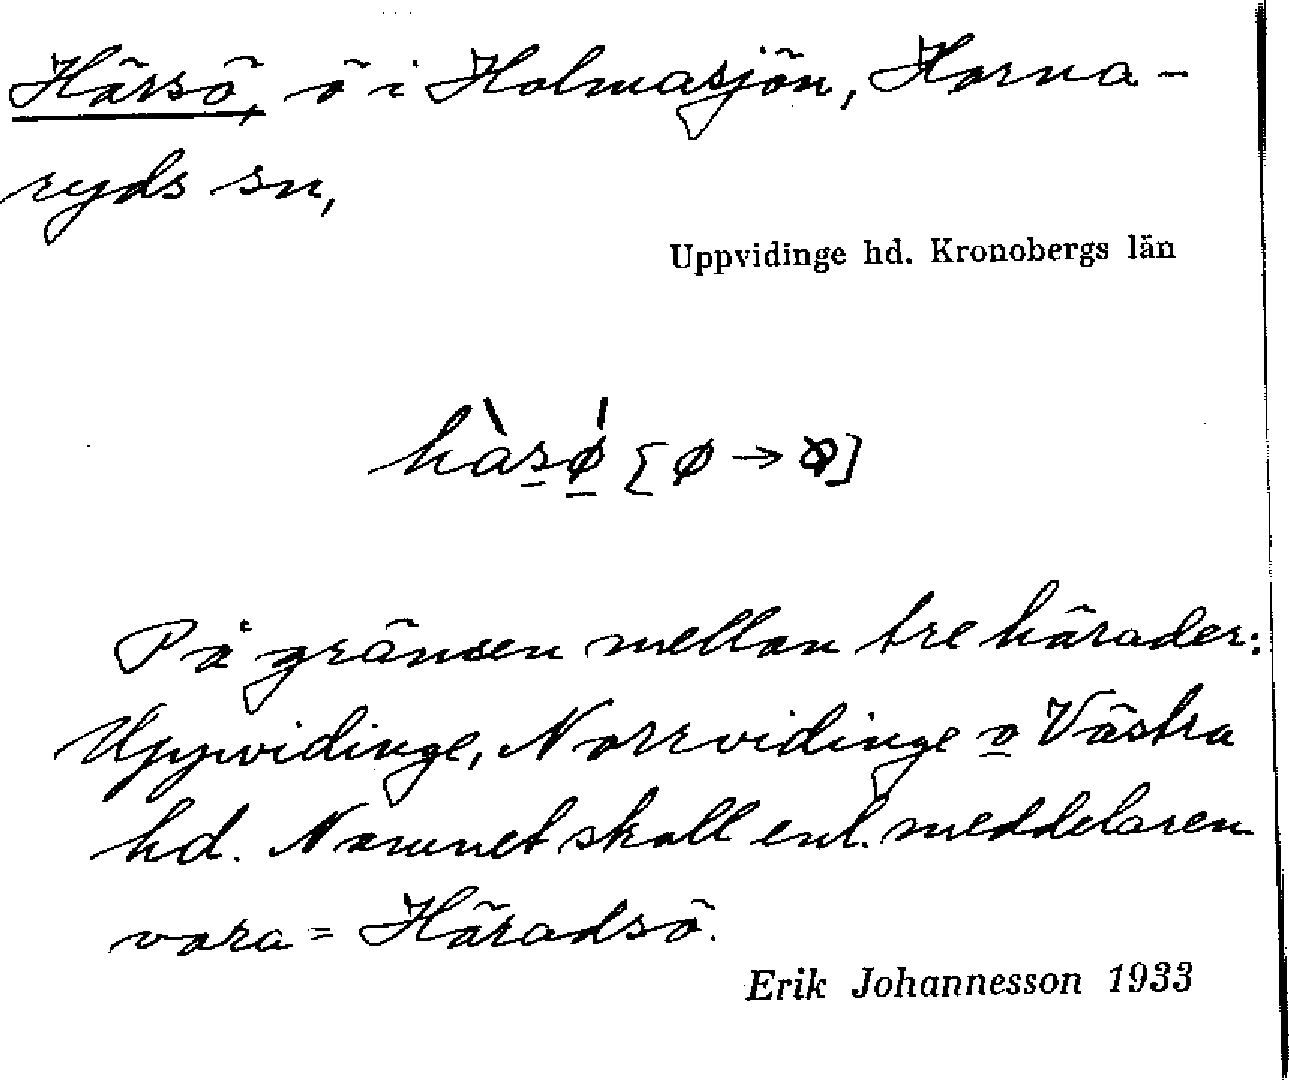 Härsö, ö i Holmasjön, Horna-
ryds sn,
Uppvidinge hd. Kronobergs län
hàsø [ø → ]
På gränsen mellan tre härader:
Uppvidinge, Norrvidinge o Västra
hd. Namnet skall enl. meddelaren
vara = Häradsö.
Erik Johannesson 1933